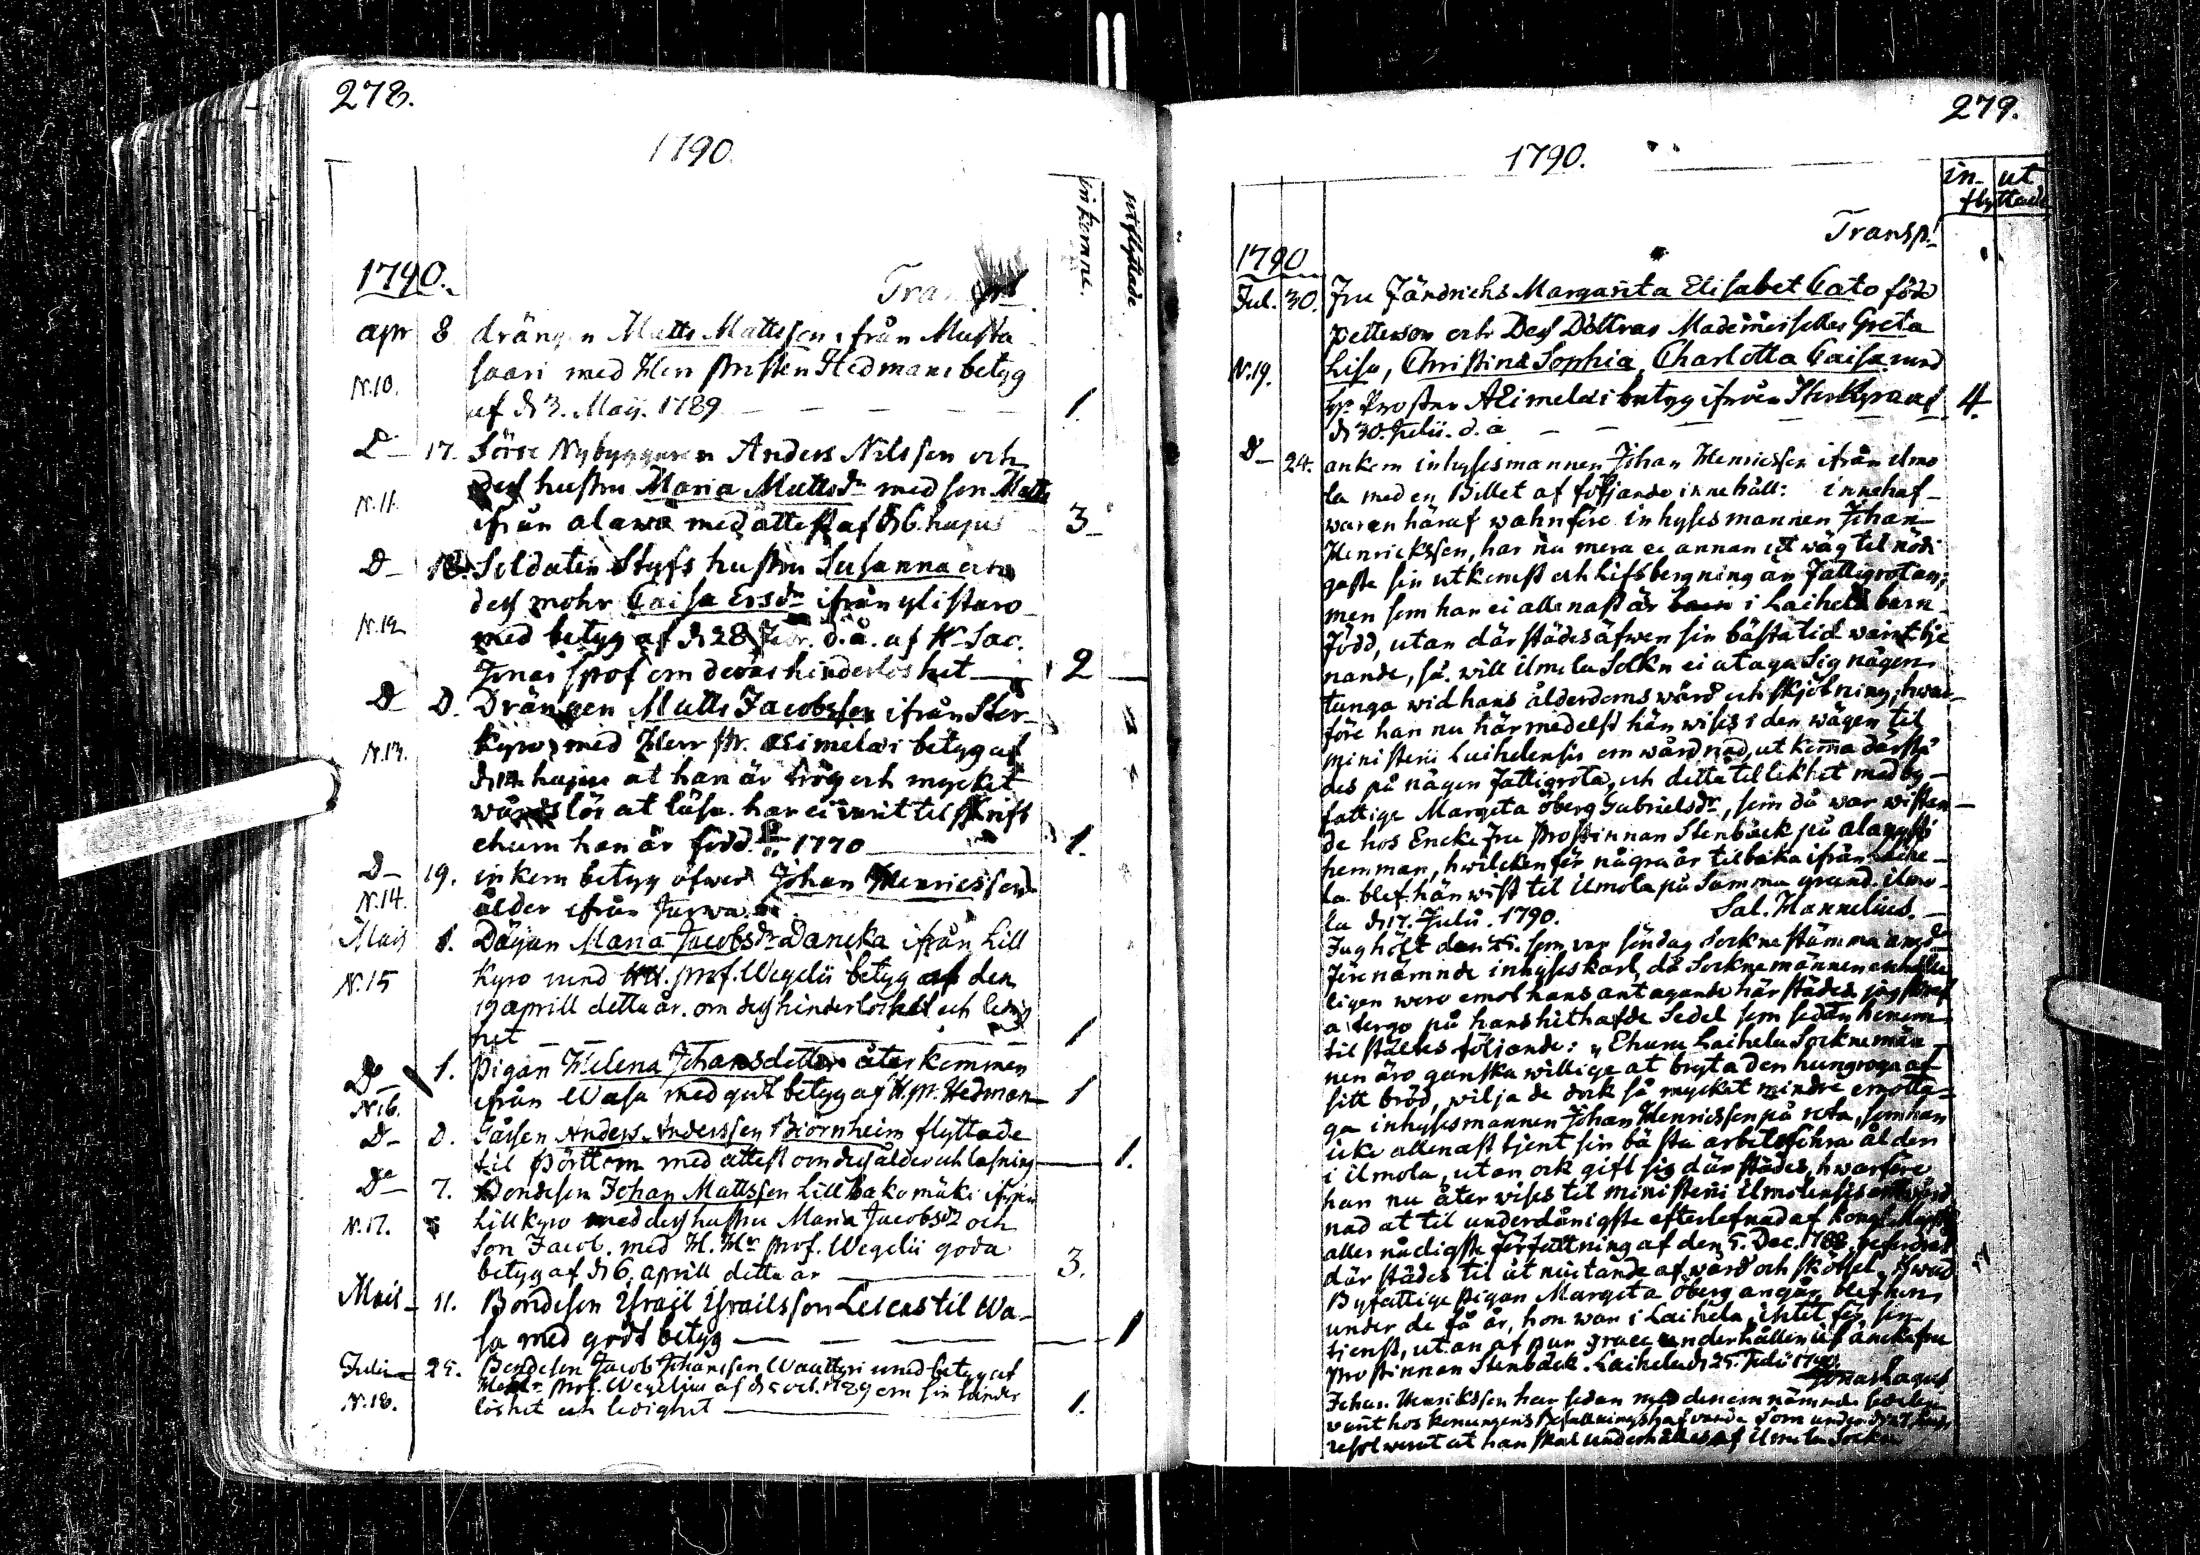 278.
1790.
inkomne.
utflyttade
1790.
Transport
apr 8 drängen Matts Mattsson ifrån Musta
N.10. saari med Herr prosten Hedmans betyg
af d 3. Maij. 1789 — — — — 1.
D— 17. Nybyggaren Anders Nilsson och
N.11. dess hustru Maria Mattsdr med son Matts
ifrån alawo med attest af d 6. hujus 3
D— 18. Soldaten Styfs hustru Susanna och
dess mohr Caisa Ersdr ifrån ylistaro
N.12 med betyg af d 28 Febr. d. å. af Hr Sac.
om deras hinderlöshet — 2
D— D. Drängen Matts Jacobsson ifrån Stor
N.13. kyro med Herr pr. Aeimelæi betyg af
d 14 hujus at han är trög och mycket
wårdslös at läsa. har ei varit til skrift
ehuru han är född 1770 — 1.
D— 19. inkom betyg öfwer Johan Henricssons
N.14. ålder ifrån Jurwa
Maij 1. Pigan Maria Jacobsdr Dancka ifrån Lill
N.15 kyro med H.H. prof. Wegelii betyg af den
19 aprill detta år. om dess hinderlöshet och ledig
het — — — 1
Do— 1. Pigan Helena Johansdotter återkommen
N.16. ifrån Wasa med godt betyg af H. pr. Hedman— 1
D— D. Gåssen Anders Andersson Biörnheim flyttade
til Pörttom med attest om dess ålder och läsning — 1.
Do— 7. Bondeson Johan Mattsson Lillbakomäki ifrån
N.17. Lillkyro med dess hustru Maria Jacobsdr och
Son Jacob. med H. Hr prof. Wegelii goda
betyg af d 6. aprill detta år — 3.
Maii— 11. Bondeson Israjl Israilsson Leicas til Wa-
sa med godt betyg — — — 1
Julii— 25. Bondeson Jacob Johansson Waattari med betyg af
Herr prof. Wegelius af d 5 oct. 1789 om sin hinder
N.18. löshet och ledighet — 1.
279.
1790.
in- ut
flyttade
Transp.
1790
Jul. 30. Fru Fändrichs Margarita Elisabet Cato född
Petterson och Dess Döttrar Mademoiseller Greta
N.19. Lisa, Christina Sophia, Charlotta Caisa med
hr. Prosten Aeimelæi betyg ifrån Storkyro af 4.
d 30. Julii. d. a — — — —
D— 24. ankom inhysesmannen Johan Henricsson ifrån ilmo
la med en Billet af följande innehåll: innehaf-
waren häraf wahnföre inhyses mannen Johan
Henricksson, har nu mera ei annan utwäg til nödi
gaste sin utkomst och Lifsbergning än Fattigrotan;
men som han ei allenast är i Laihela barn
född, utan därstädes äfwen sin bästa tid varit tje
nande, så will ilmola Sockn ei utaga Sig någon
tunga wid hans ålderdoms wård och skjötning; hwar-
före han nu härmedelst hänwises i den wägen til
ministerii Laihelensis om wårdnad, ut komma därstä
des på någon Fattigrota, och detta til likhet med by-
fattige Margeta Öberg Gabrielsdr, som då war wistan-
de hos Encke Fru Prostinnan Stenbäck på
hemman, hwilcken för några år tilbaka ifrån Laihe-
la blef hänwist til ilmola på Samma grund. ilmo-
la d 17. Julii. 1790. Sal. Hannelius.
Jag hölt den 25. som var söndag Sockne stämma
förenämnde inhyseskarl, då Sockne männen enhälle
ligen woro emot hans antagande härstädes jag skref
a tergo på hans hithafde Sedel som sedan honom
til ställtes följande: „ Ehuru Laihela Sockne män
nen äro ganska willige at bryta den hungroga af
sitt bröd, wilja de dock så mycket mindre emotta-
ga inhyses mannen Johan Henricsson på rota, som han
icke allenast tjent sin bästa arbetsföhra ålder
i ilmola, utan ock gift sig därstädes, hwarföre
han nu åter wises til ministerii ilmolensis
nad at til underdånigste efterlefnad af Kongl. Majts
aller nådigste författning af den 5. Dec. 1788. befordras
där städes til åt niutande af wård och skötsel. Hwad
Byfattige pigan Margeta Öberg angår, blef hon
under de få år, hon war i Laihela, intet för sin
tienst, utan af pur grace underhållen af äncke fru
Prostinnan Stenbäck. Laihela d 25. Julii 1790.
Jonas Lagus
Johan Henriksson har sedan med denom nämnde sedel
varit hos konungens Befallningshafvande som under d 27
resolverat at han skal underhållas af ilmola Sockn